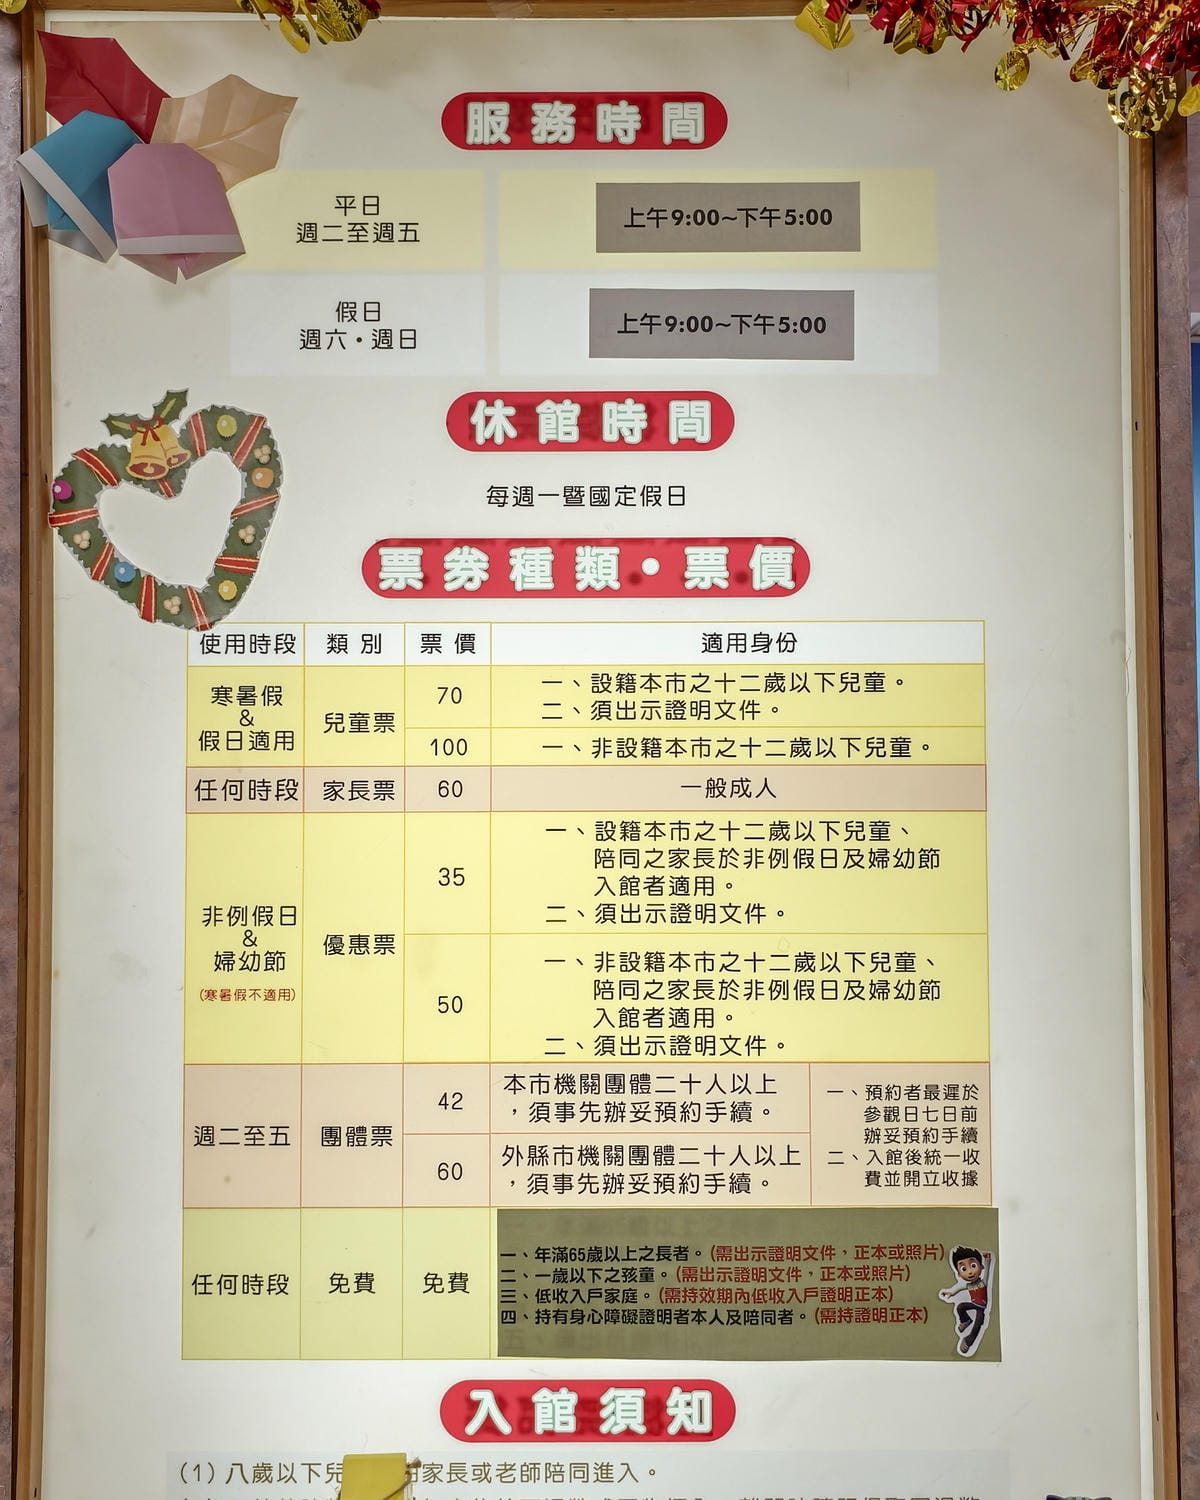 服務時間
平日
週二至週五
上午9:00~下午5:00
假日
週六・週日
上午9:00~下午5:00
休館時間
每週一暨國定假日
票券種類・票價
使用時段 類別 票價 適用身份
寒暑假
&
假日適用
兒童票
70
一、設籍本市之十二歲以下兒童。
二、須出示證明文件。
100
一、非設籍本市之十二歲以下兒童。
任何時段 家長票 60 一般成人
非例假日
&
婦幼節
(寒暑假不適用)
優惠票
35
一、設籍本市之十二歲以下兒童、
陪同之家長於非例假日及婦幼節
入館者適用。
二、須出示證明文件。
50
一、非設籍本市之十二歲以下兒童、
陪同之家長於非例假日及婦幼節
入館者適用。
二、須出示證明文件。
週二至五
團體票
42
本市機關團體二十人以上
，須事先辦妥預約手續。
60
外縣市機關團體二十人以上
，須事先辦妥預約手續。
一、預約者最遲於
參觀日七日前
辦妥預約手續
二、入館後統一收
費並開立收據
任何時段 免費 免費
一、年滿65歲以上之長者。(需出示證明文件，正本或照片)
二、一歲以下之孩童。(需出示證明文件，正本或照片)
三、低收入戶家庭。(需持效期內低收入戶證明正本)
四、持有身心障礙證明者本人及陪同者。(需持證明正本)
入館須知
(1)八歲以下兒 家長或老師陪同進入。